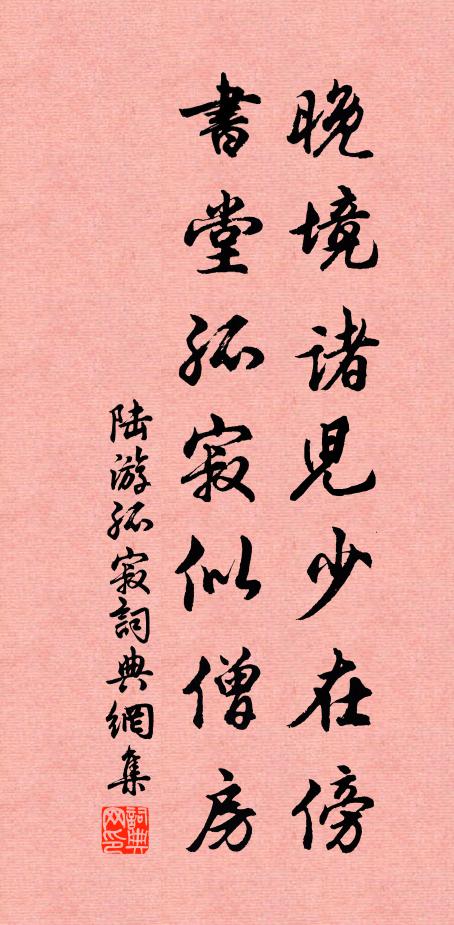 晚境諸兒少在傍
書堂孤寂似僧房
陆游孤寂詞典網集
詞典
网印